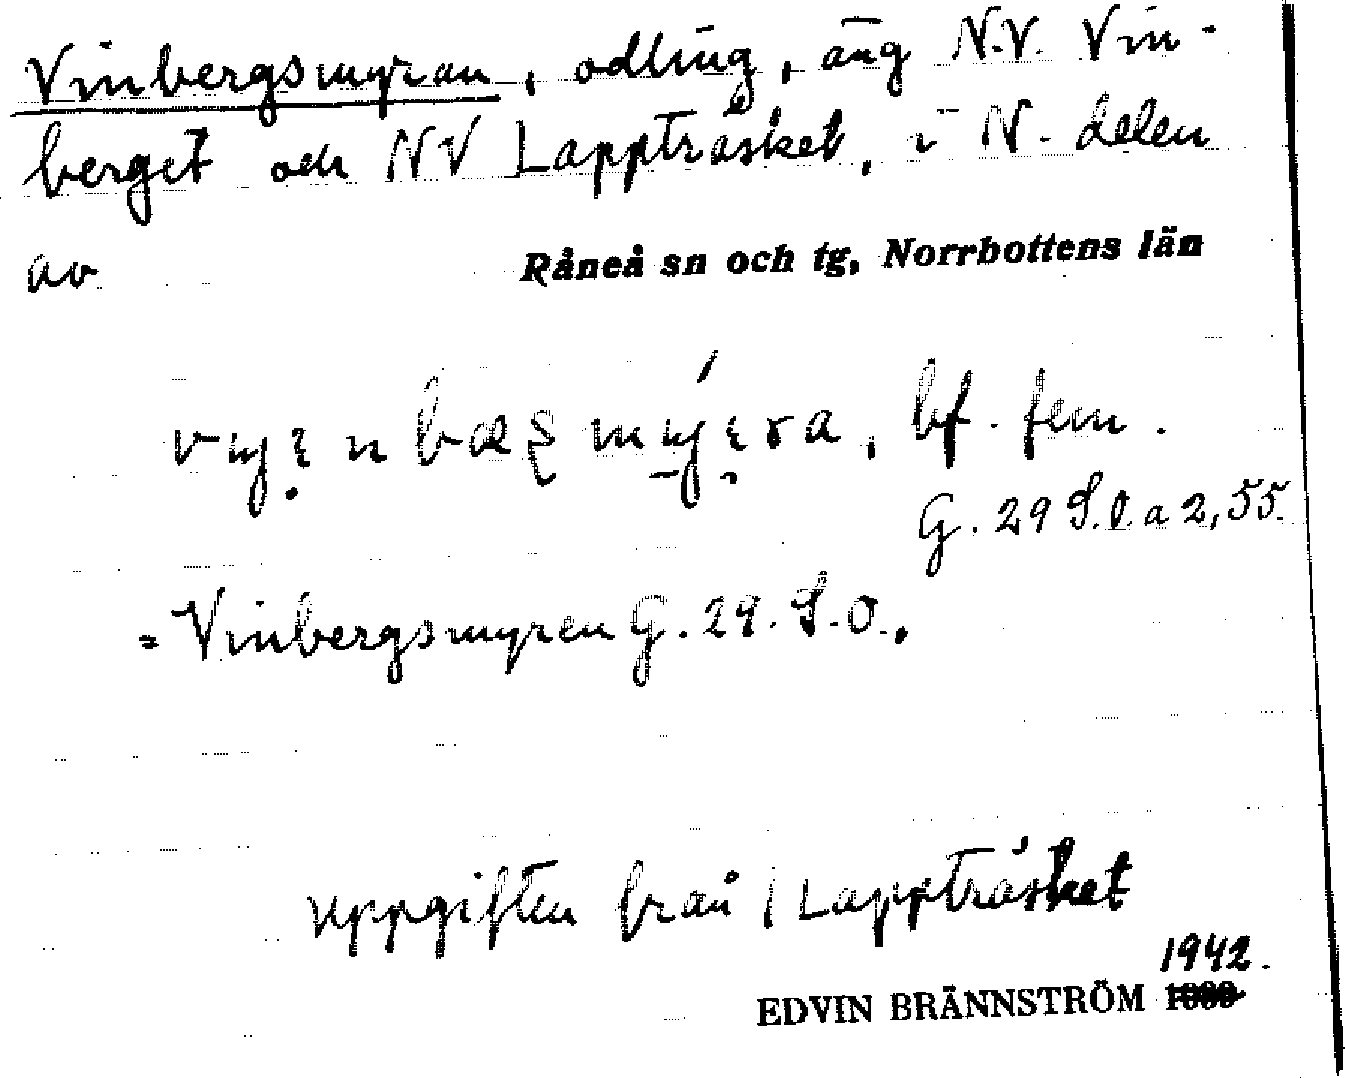 Vinbergsmyran, odling, äng N.V. Vin-
berget och NV Lappträsket, i N. delen
av Råneå sn och tg, Norrbottens län
bf. fem.
G. 29 S.O. a 2,55.
= Vinbergsmyren G. 29. S.O..
uppgiften från Lappträsket
1942.
EDVIN BRÄNNSTRÖM